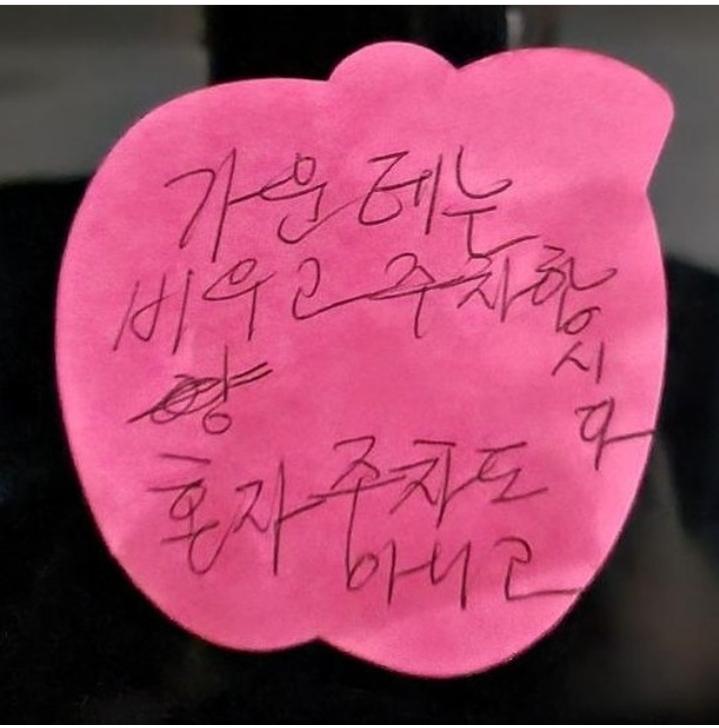 가운테는
비우고 주차항
시
다
혼자 주차도
아니고